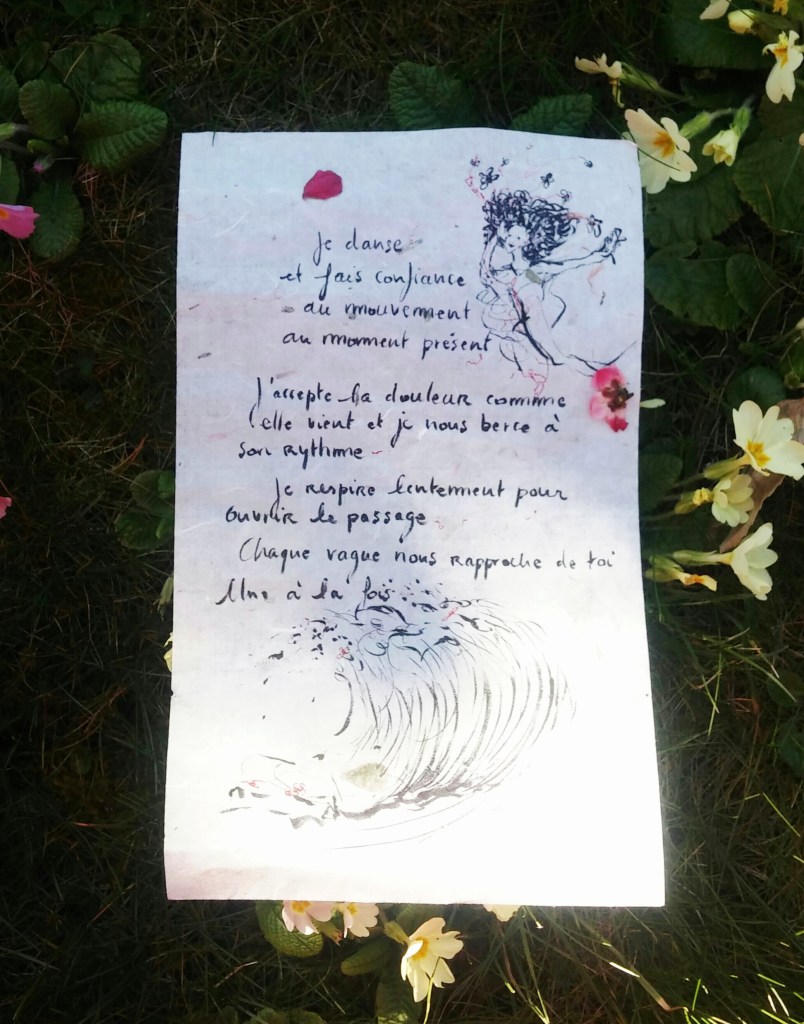 Je danse
et fais confiance
au mouvement
au moment présent
J'accepte la douleur comme
elle vient et je nous berce à
son rythme
Je respire lentement pour
ouvrir le passage
Chaque vague nous rapproche de toi
Une à la fois.